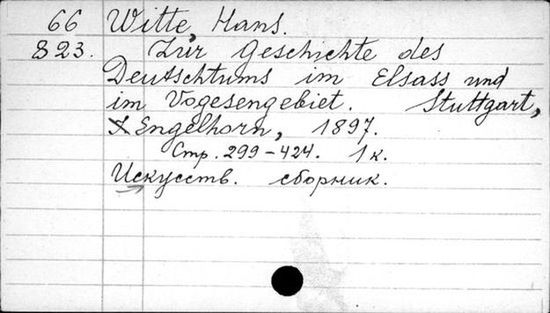 66 Witte, Hans.
823. Zur Geschichte des
Deutschtums im Elsass und
im Vogesengebiet. Stuttgart,
Engelhorn, 1897.
Стр. 299-424. 1 к.
Искусств. сборник.